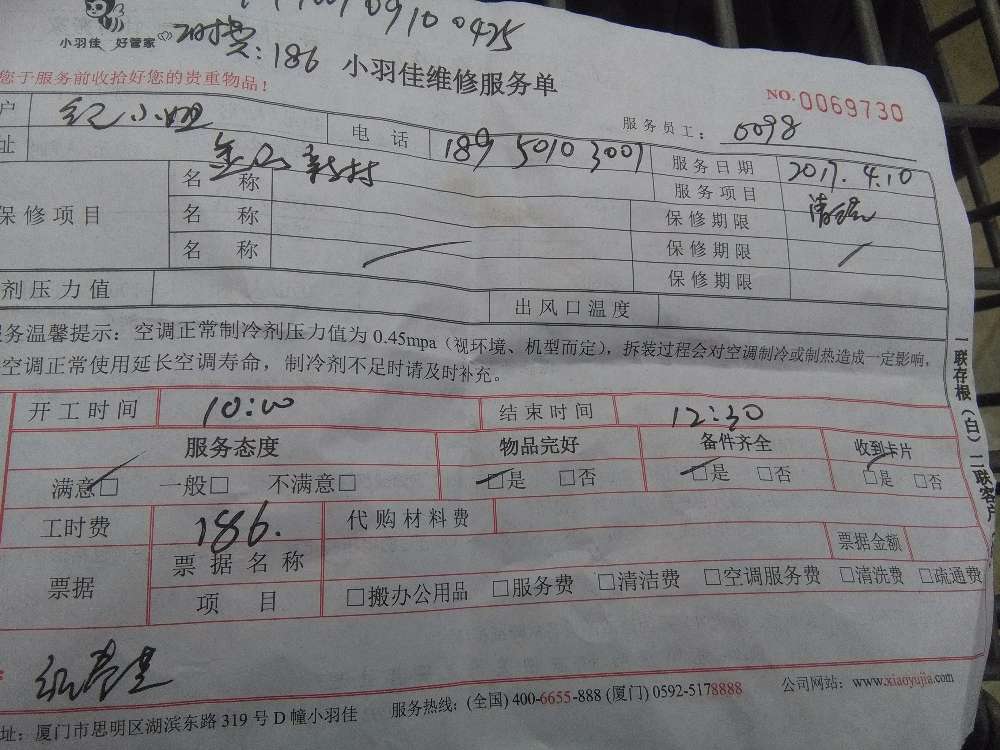 09100425
小羽佳 好管家
时费:186
小羽佳维修服务单
您于服务前收拾好您的贵重物品!
NO.0069730
服务员工: 6098
户 纪小姐 电话 189 5010 3007 服务日期 2017.4.10
址 金山新村 服务项目 清洗
保修项目 名称 保修期限
名称 保修期限
名称 保修期限
剂压力值 出风口温度
服务温馨提示:空调正常制冷剂压力值为0.45mpa(视环境、机型而定),拆装过程会对空调制冷或制热造成一定影响,
空调正常使用延长空调寿命,制冷剂不足时请及时补充。
一联存根(白)二联客户
开工时间 10:00 结束时间 12:30
服务态度 物品完好 备件齐全 收到卡片
满意□ 一般□ 不满意□ □是 □否 □是 □否 □是 □否
工时费 186. 代购材料费
票据 票据名称 票据金额
项目 □搬办公用品 □服务费 □清洁费 □空调服务费 □清洗费 □疏通费
址:厦门市思明区湖滨东路319号D幢小羽佳 服务热线:(全国)400-6655-888(厦门)0592-5178888 公司网站:www.xiaoyujia.com